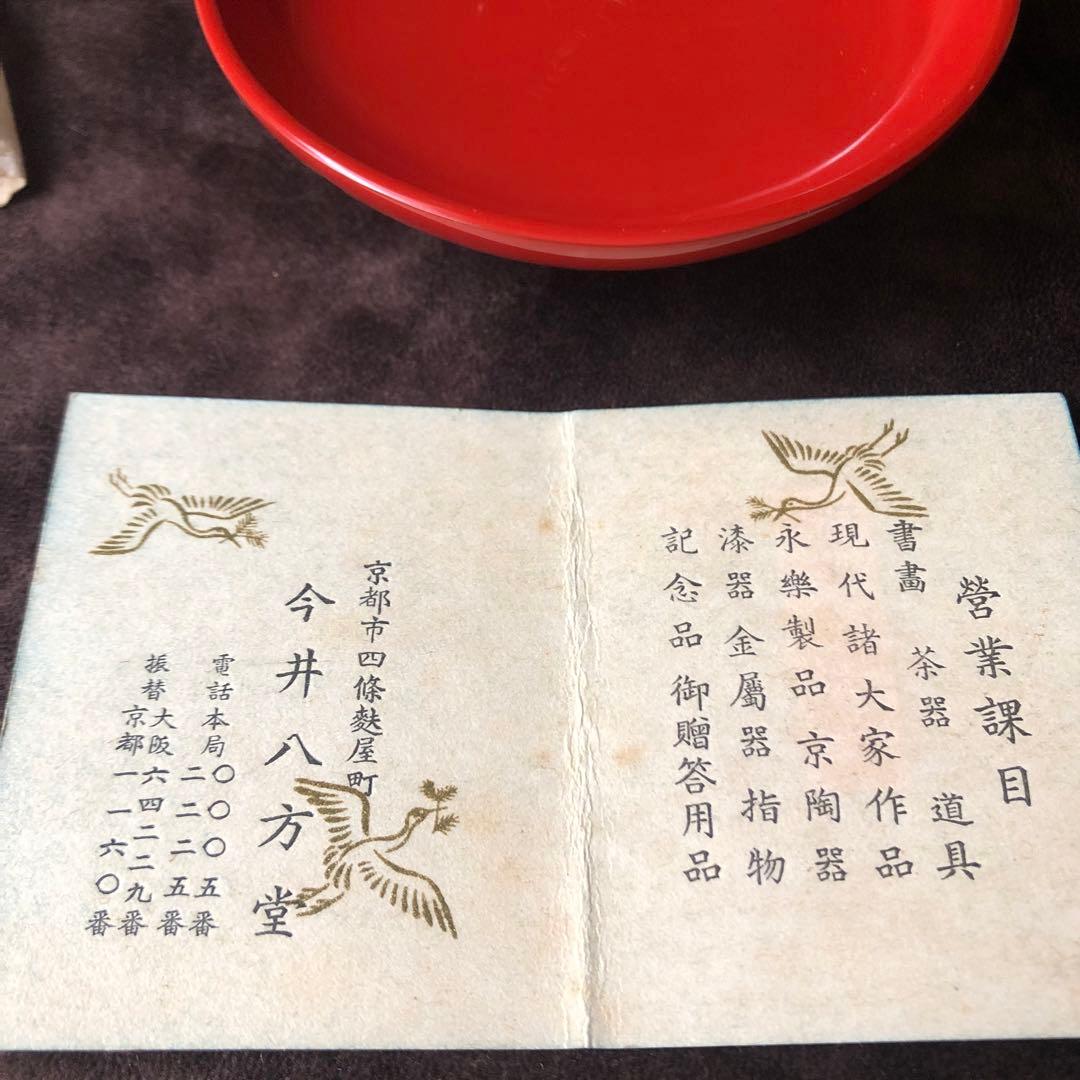 營業課目
書畫 茶器 道具
現代諸大家作品
永樂製品 京陶器
漆器 金屬器 指物
記念品 御贈答用品
京都市四條麩屋町
今井八方堂
電話本局 〇〇〇五番
二二二五番
振替 大阪六四二二九番
京都一一六〇番